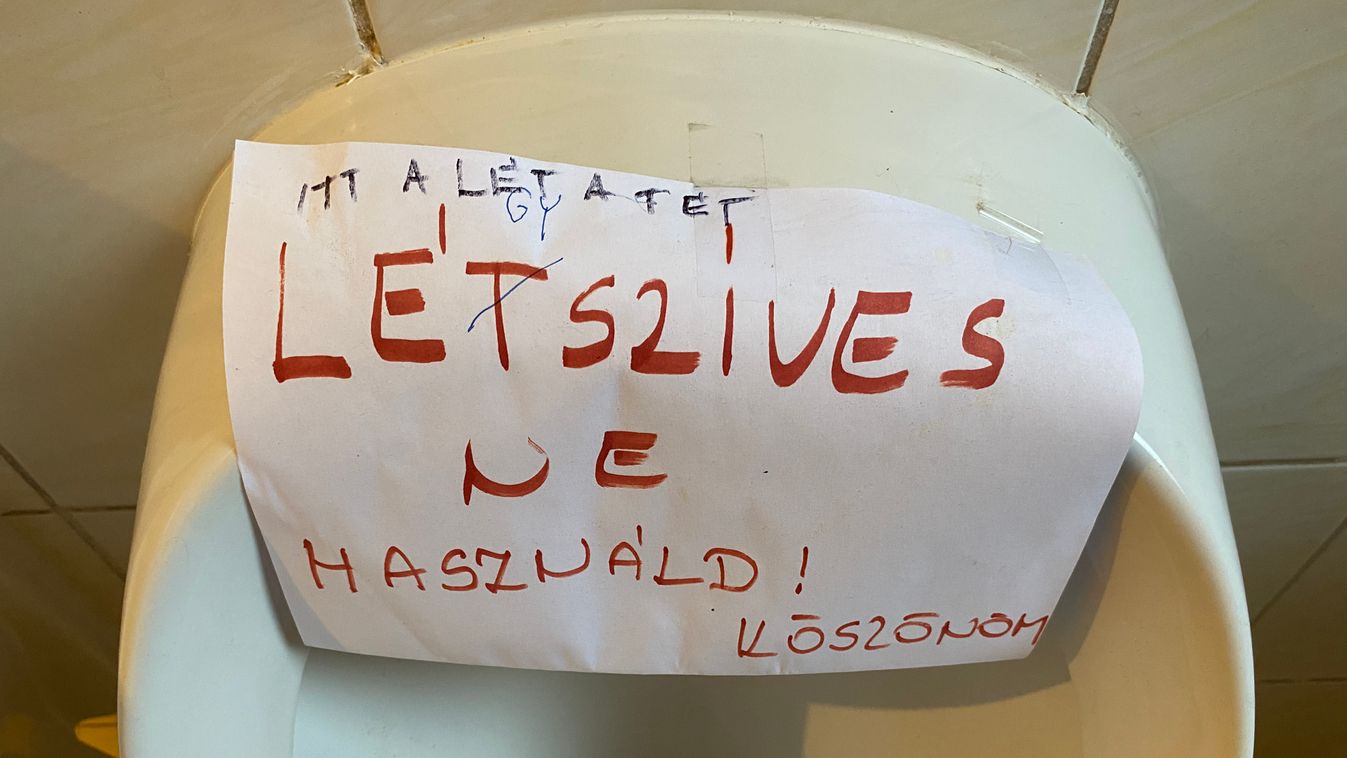 ITT A LÉT A TÉT
GY
LÉTSZÍVES
NE
HASZNÁLD!
KÖSZÖNÖM